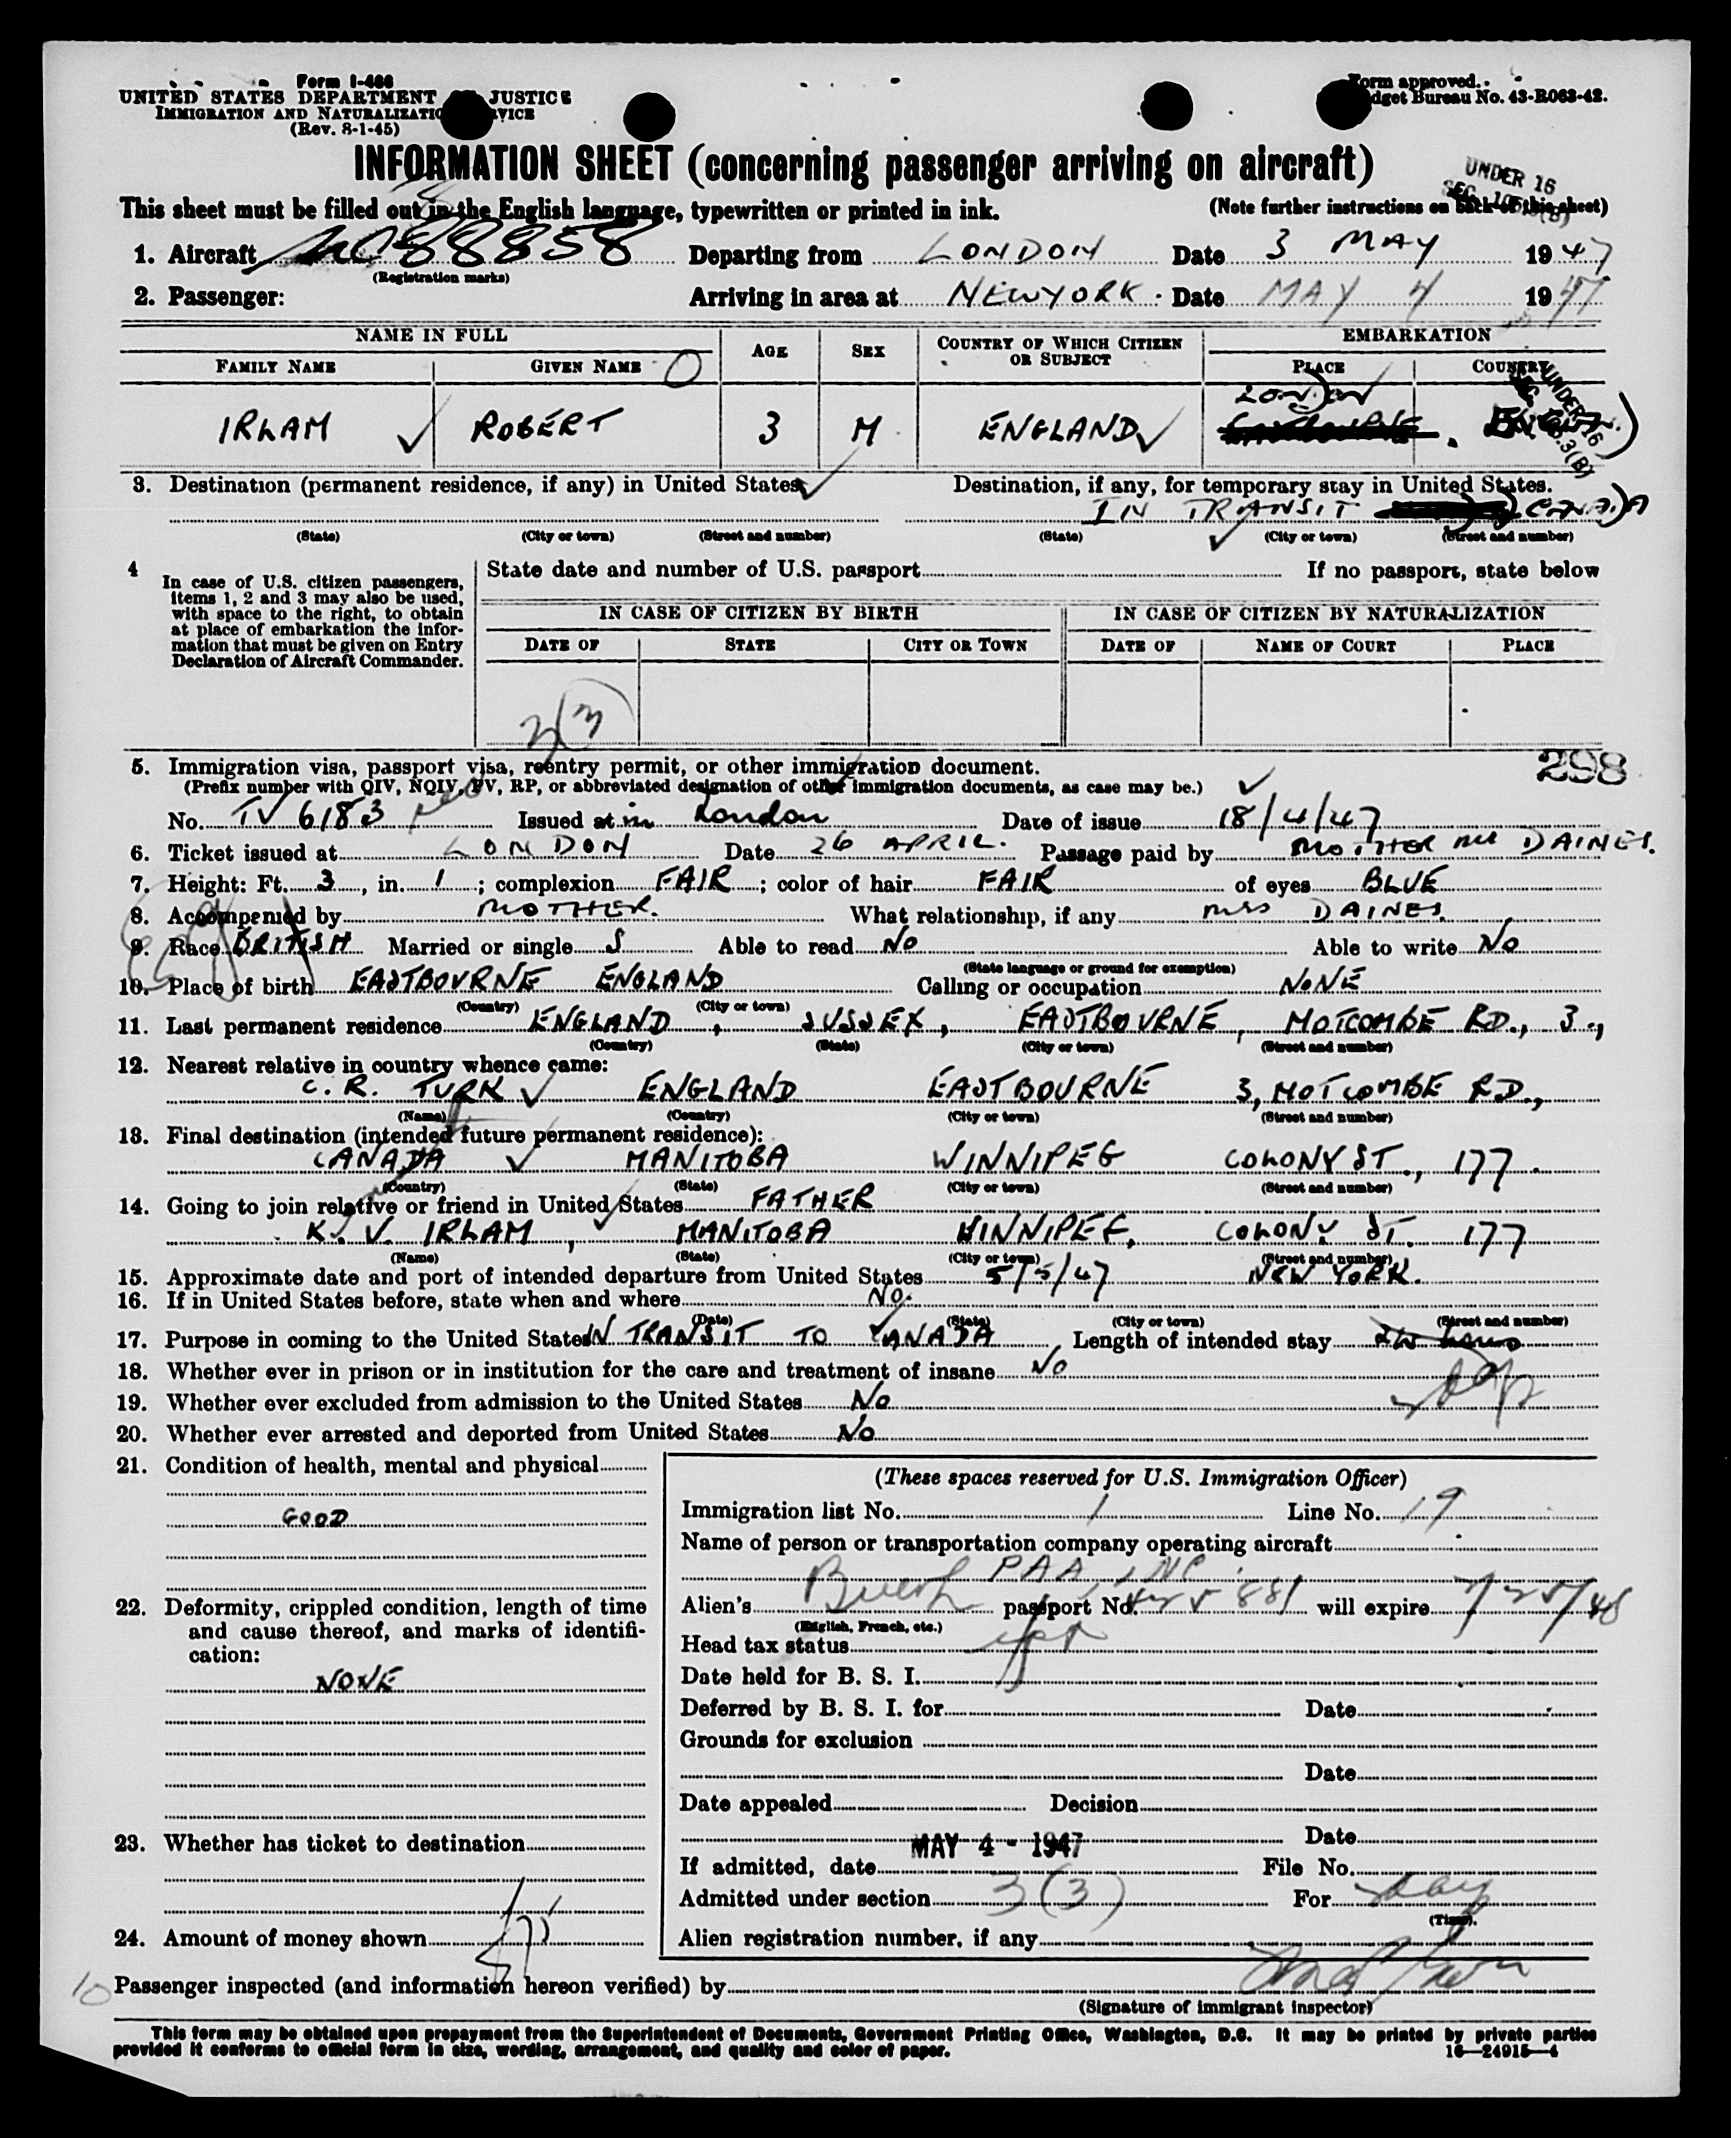 Form I-466
UNITED STATES DEPARTMENT JUSTICE
IMMIGRATION AND NATURALIZATION
(Rev. 8-1-45)
Form approved.
Budget Bureau No. 43-R063-42.
INFORMATION SHEET (concerning passenger arriving on aircraft)
UNDER 16
This sheet must be filled out in the English language, typewritten or printed in ink.
(Note further instructions on back of this sheet)
1. Aircraft NC 88858 Departing from LONDON Date 3 MAY 1947
(Registration marks)
2. Passenger: Arriving in area at NEWYORK. Date MAY 4 1947
NAME IN FULL AGE SEX COUNTRY OF WHICH CITIZEN OR SUBJECT EMBARKATION
FAMILY NAME GIVEN NAME PLACE COUNTRY
UNDER 16
LONDON
IRLAM ROBERT 3 M ENGLAND
3. Destination (permanent residence, if any) in United States Destination, if any, for temporary stay in United States.
IN TRANSIT CANADA
(State) (City or town) (Street and number) (State) (City or town) (Street and number)
4 In case of U.S. citizen passengers, items 1, 2 and 3 may also be used, with space to the right, to obtain at place of embarkation the information that must be given on Entry Declaration of Aircraft Commander.
State date and number of U.S. passport If no passport, state below
IN CASE OF CITIZEN BY BIRTH IN CASE OF CITIZEN BY NATURALIZATION
DATE OF STATE CITY OR TOWN DATE OF NAME OF COURT PLACE
3(3)
298
5. Immigration visa, passport visa, reentry permit, or other immigration document.
(Prefix number with QIV, NQIV, PV, RP, or abbreviated designation of other immigration documents, as case may be.)
No. TV 6183 Issued at in London Date of issue 18/4/47
6. Ticket issued at LONDON Date 26 APRIL. Passage paid by MOTHER DAINES.
7. Height: Ft. 3, in. 1; complexion FAIR; color of hair FAIR of eyes BLUE
8. Accompanied by MOTHER. What relationship, if any DAINES
9. Race BRITISH Married or single S Able to read No Able to write No
(State language or ground for exemption)
10. Place of birth EASTBOURNE ENGLAND Calling or occupation NONE
(Country) (City or town)
11. Last permanent residence ENGLAND, SUSSEX, EASTBOURNE, MOTCOMBE RD., 3.,
(Country) (State) (City or town) (Street and number)
12. Nearest relative in country whence came:
C. R. TURK ENGLAND EASTBOURNE 3, MOTCOMBE RD.,
(Name) (Country) (City or town) (Street and number)
13. Final destination (intended future permanent residence):
CANADA MANITOBA WINNIPEG COLONY ST., 177.
(Country) (State) (City or town) (Street and number)
14. Going to join relative or friend in United States FATHER
K. V. IRLAM, MANITOBA WINNIPEG, COLONY ST. 177
(Name) (State) (City or town) (Street and number)
15. Approximate date and port of intended departure from United States 5/5/47 NEW YORK.
16. If in United States before, state when and where No.
(Date) (State) (City or town) (Street and number)
17. Purpose in coming to the United States IN TRANSIT TO CANADA Length of intended stay
18. Whether ever in prison or in institution for the care and treatment of insane No
19. Whether ever excluded from admission to the United States No
20. Whether ever arrested and deported from United States No
21. Condition of health, mental and physical
GOOD
22. Deformity, crippled condition, length of time and cause thereof, and marks of identification:
NONE
23. Whether has ticket to destination
24. Amount of money shown
(These spaces reserved for U.S. Immigration Officer)
Immigration list No. 1 Line No. 19
Name of person or transportation company operating aircraft
PAA, INC.
Alien's passport No. will expire
(English, French, etc.)
Head tax status
Date held for B. S. I.
Deferred by B. S. I. for Date
Grounds for exclusion
Date
Date appealed Decision
Date
If admitted, date MAY 4 - 1947 File No.
Admitted under section 3(3) For
(Time).
Alien registration number, if any
10
Passenger inspected (and information hereon verified) by
(Signature of immigrant inspector)
This form may be obtained upon prepayment from the Superintendent of Documents, Government Printing Office, Washington, D.C. It may be printed by private parties
provided it conforms to official form in size, wording, arrangement, and quality and color of paper.
16—24915-4